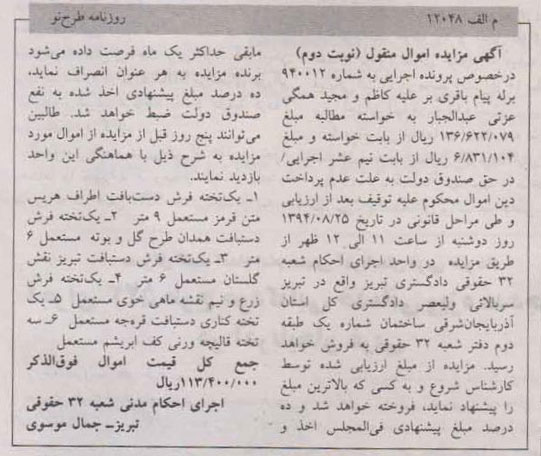 م الف ۱۲۰۴۸
روزنامه طرح‌نو
آگهی مزایده اموال منقول (نوبت دوم)
درخصوص پرونده اجرایی به شماره ۹۴۰۰۱۲
برله پیام باقری بر علیه کاظم و مجید همگی
عزتی عبدالجبار به خواسته مطالبه مبلغ
۱۳۶/۶۲۲/۰۷۹ ریال از بابت خواسته و مبلغ
۶/۸۳۱/۱۰۴ ریال از بابت نیم عشر اجرایی/
در حق صندوق دولت به علت عدم پرداخت
دین اموال محکوم علیه توقیف بعد از ارزیابی
و طی مراحل قانونی در تاریخ ۱۳۹۴/۰۸/۲۵
روز دوشنبه از ساعت ۱۱ الی ۱۲ ظهر از
طریق مزایده در واحد اجرای احکام شعبه
۳۲ حقوقی دادگستری تبریز واقع در تبریز
سربالائی ولیعصر دادگستری کل استان
آذربایجان‌شرقی ساختمان شماره یک طبقه
دوم دفتر شعبه ۳۲ حقوقی به فروش خواهد
رسید. مزایده از مبلغ ارزیابی شده توسط
کارشناس شروع و به کسی که بالاترین مبلغ
را پیشنهاد نماید، فروخته خواهد شد و ده
درصد مبلغ پیشنهادی فی‌المجلس اخذ و
مابقی حداکثر یک ماه فرصت داده می‌شود
برنده مزایده به هر عنوان انصراف نماید،
ده درصد مبلغ پیشنهادی اخذ شده به نفع
صندوق دولت ضبط خواهد شد. طالبین
می‌توانند پنج روز قبل از مزایده از اموال مورد
مزایده به شرح ذیل با هماهنگی این واحد
بازدید نمایند.
۱ـ یک‌تخته فرش دست‌بافت اطراف هریس
متن قرمز مستعمل ۹ متر ۲ـ یک‌تخته فرش
دستبافت همدان طرح گل و بوته مستعمل ۶
متر ۳ـ یک‌تخته فرش دستبافت تبریز نقش
گلستان مستعمل ۶ متر ۴ـ یک‌تخته فرش
زرع و نیم نقشه ماهی خوی مستعمل ۵ـ یک
تخته کناری دستبافت قره‌جه مستعمل ۶ـ سه
تخته قالیچه ورنی کف ابریشم مستعمل
جمع کل قیمت اموال فوق‌الذکر
۱۱۳/۴۰۰/۰۰۰ریال
اجرای احکام مدنی شعبه ۳۲ حقوقی
تبریزـ جمال موسوی